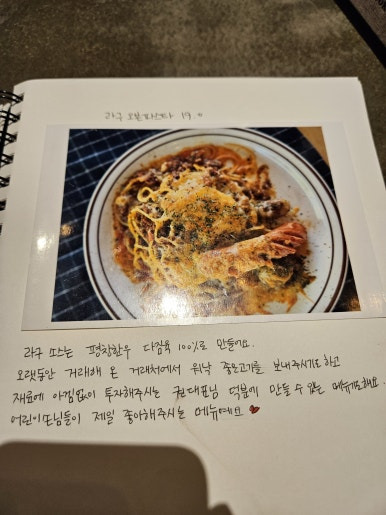 라구 오븐파스타 19.0
라구 쏘스는 평창한우 다짐육 100%로 만들어요.
오랫동안 거래해 온 거래처에서 워낙 좋은고기를 보내주시기도 하고
재료에 아낌없이 투자해주시는 권대표님 덕분에 만들 수 있는 메뉴기도해요.
어린이손님들이 제일 좋아해주시는 메뉴예요 ♥